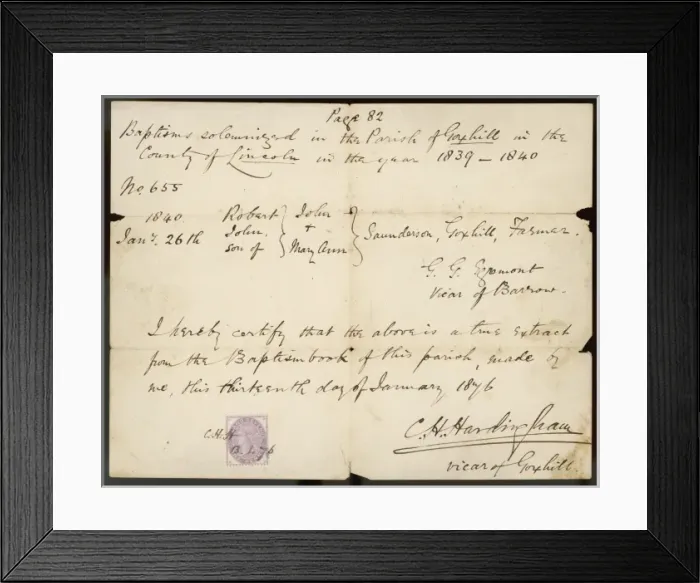 Page 82
Baptisms solemnized in the Parish of Goxhill in the
County of Lincoln in the year 1839 – 1840
No. 655
1840. Robert John
Jany. 26th John. + Saunderson, Goxhill, Farmer.
son of Mary Ann
G. G. Egmont
Vicar of Barrow.
I hereby certify that the above is a true extract
from the Baptism book of this parish, made by
me, this thirteenth day of January 1876
C.H. Hardingham
vicar of Goxhill.
C.H.H
13.1.76